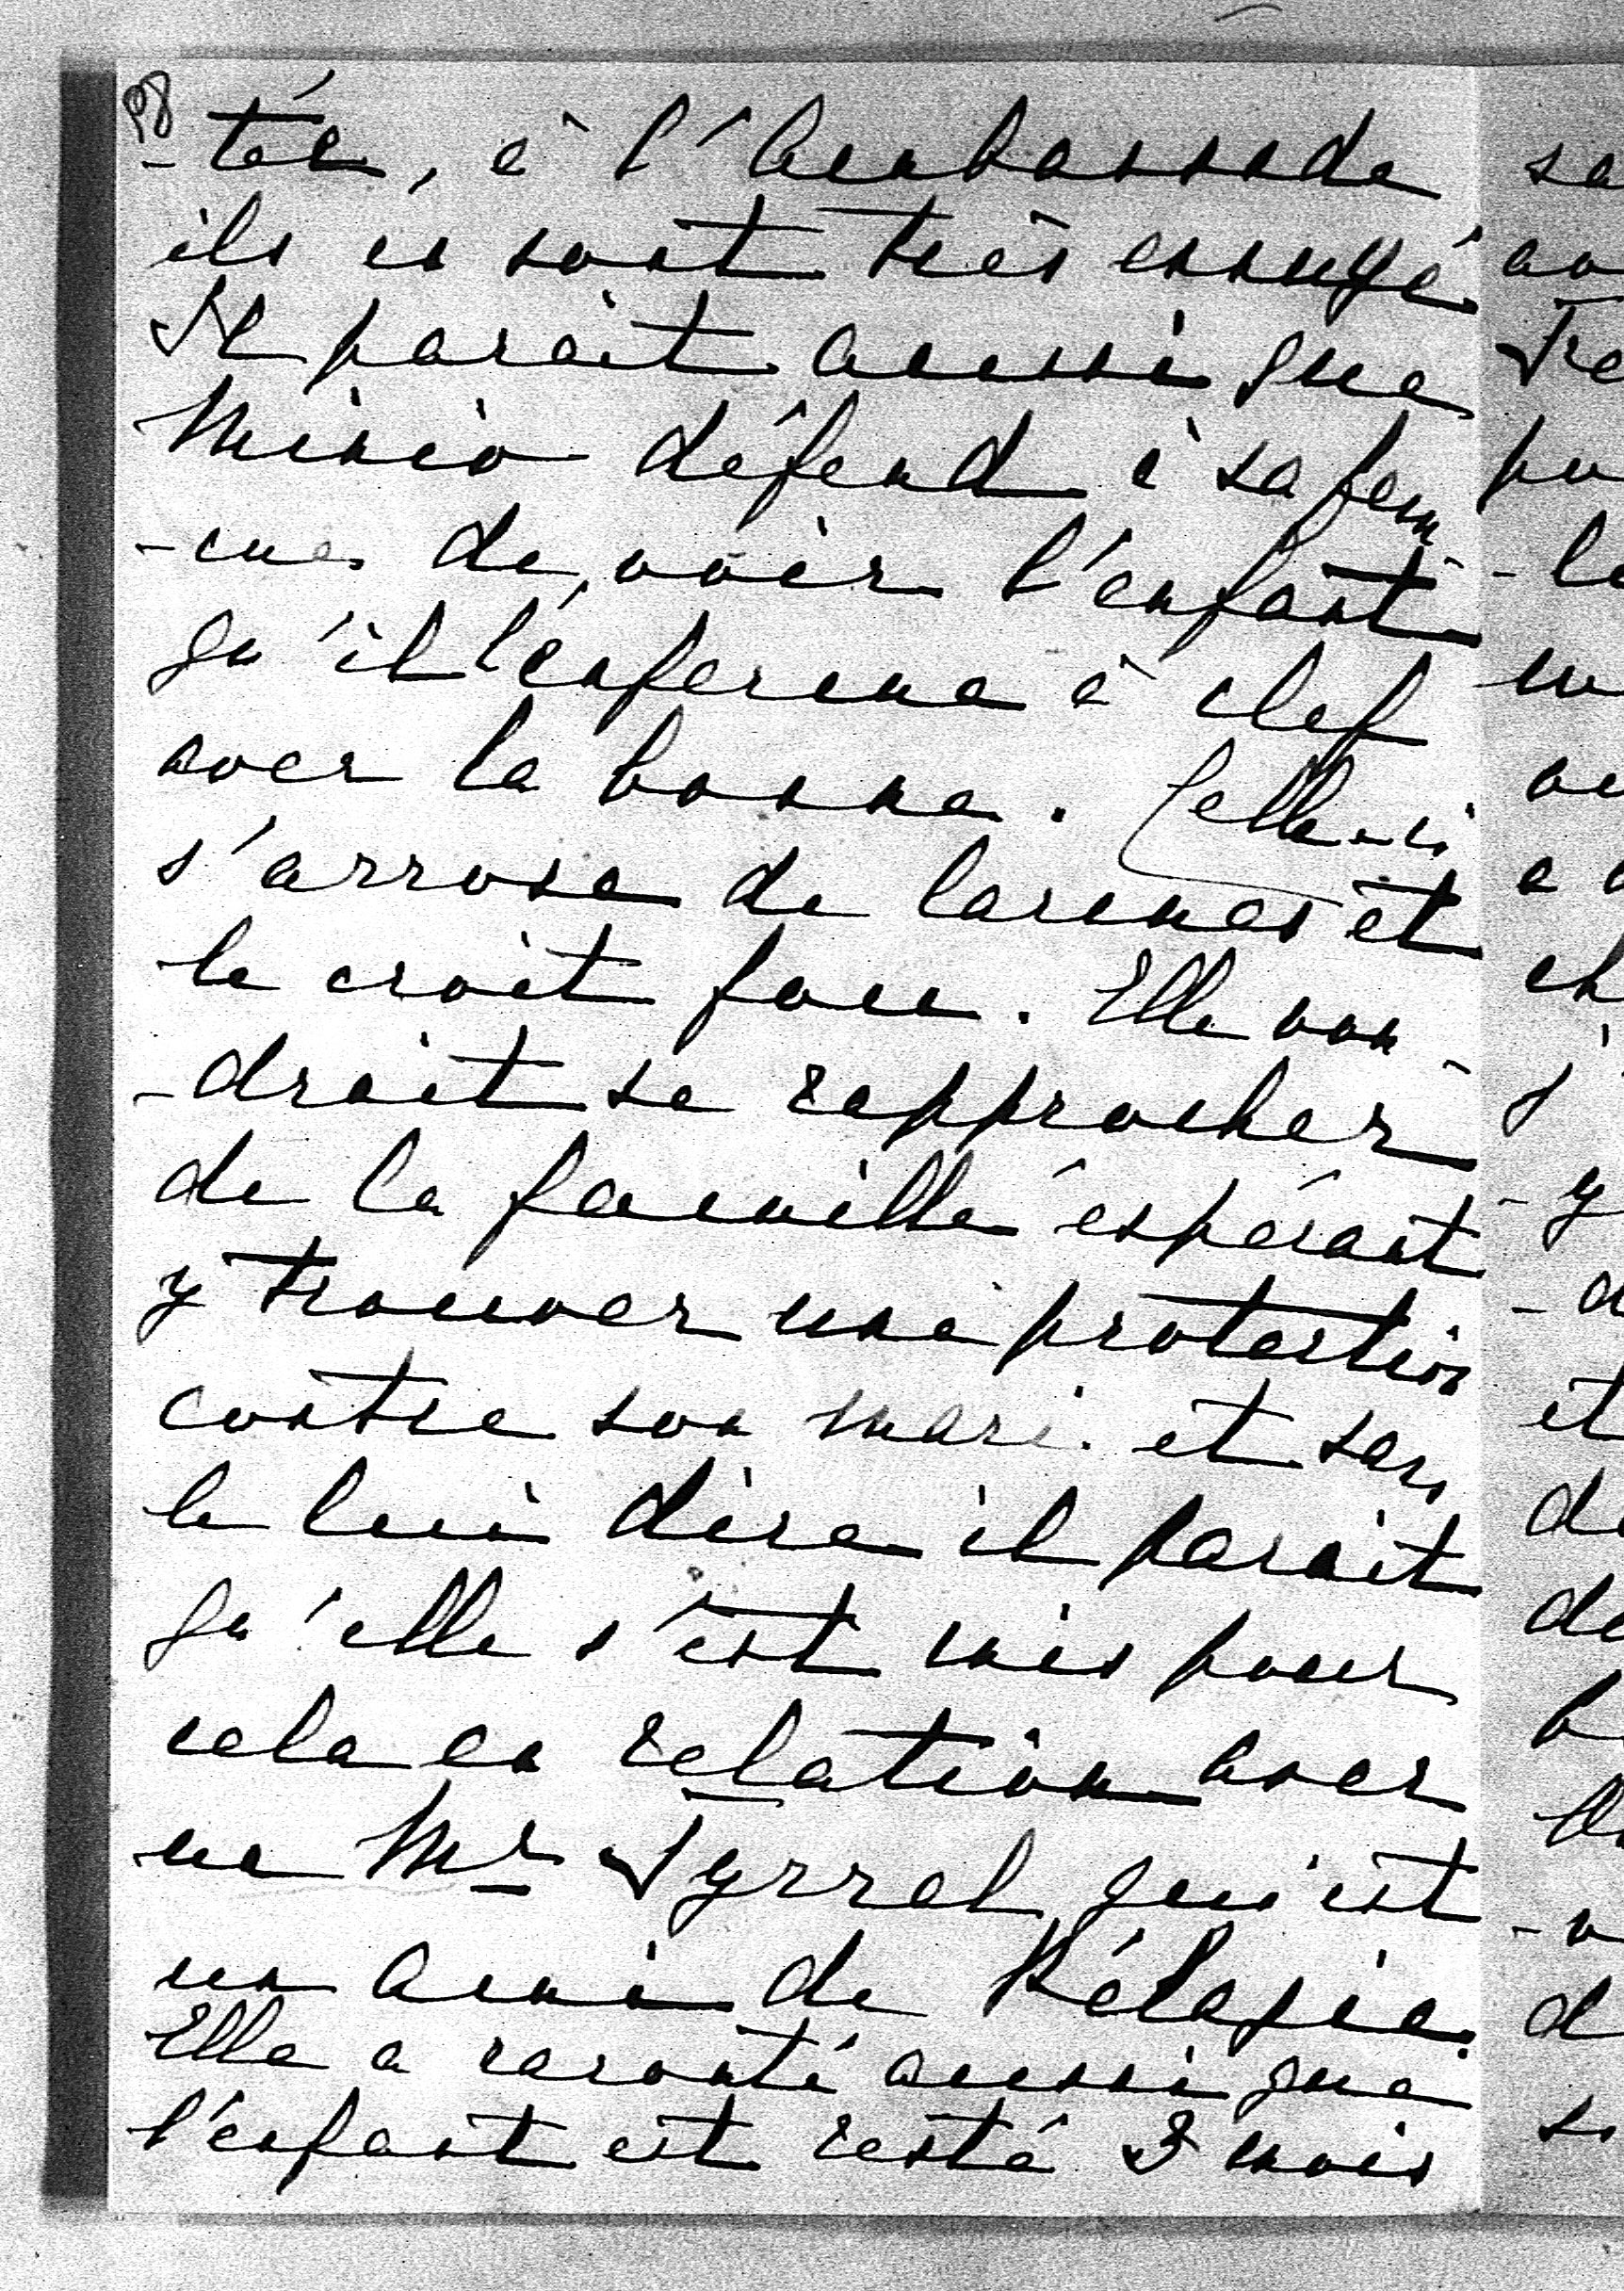 98
-tée, à l'Ambassade
ils en sont très ennuyé
Il parait aussi que
Mircio défend à sa fem
-me de voir l'enfant
qu'il l'enferme à clef
avec la bonne. Celle-ci
s'arrose de larmes et
le croit fou. Elle vou-
-drait se rapprocher
de la famille espérant
y trouver une protection
contre son mari et sans
le lui dire il parait
qu'elle s'est mis pour
cela en relation avec
un Mr Tyrrel qui est
un ami de
Elle a raconté aussi que
l'enfant est resté 3 mois